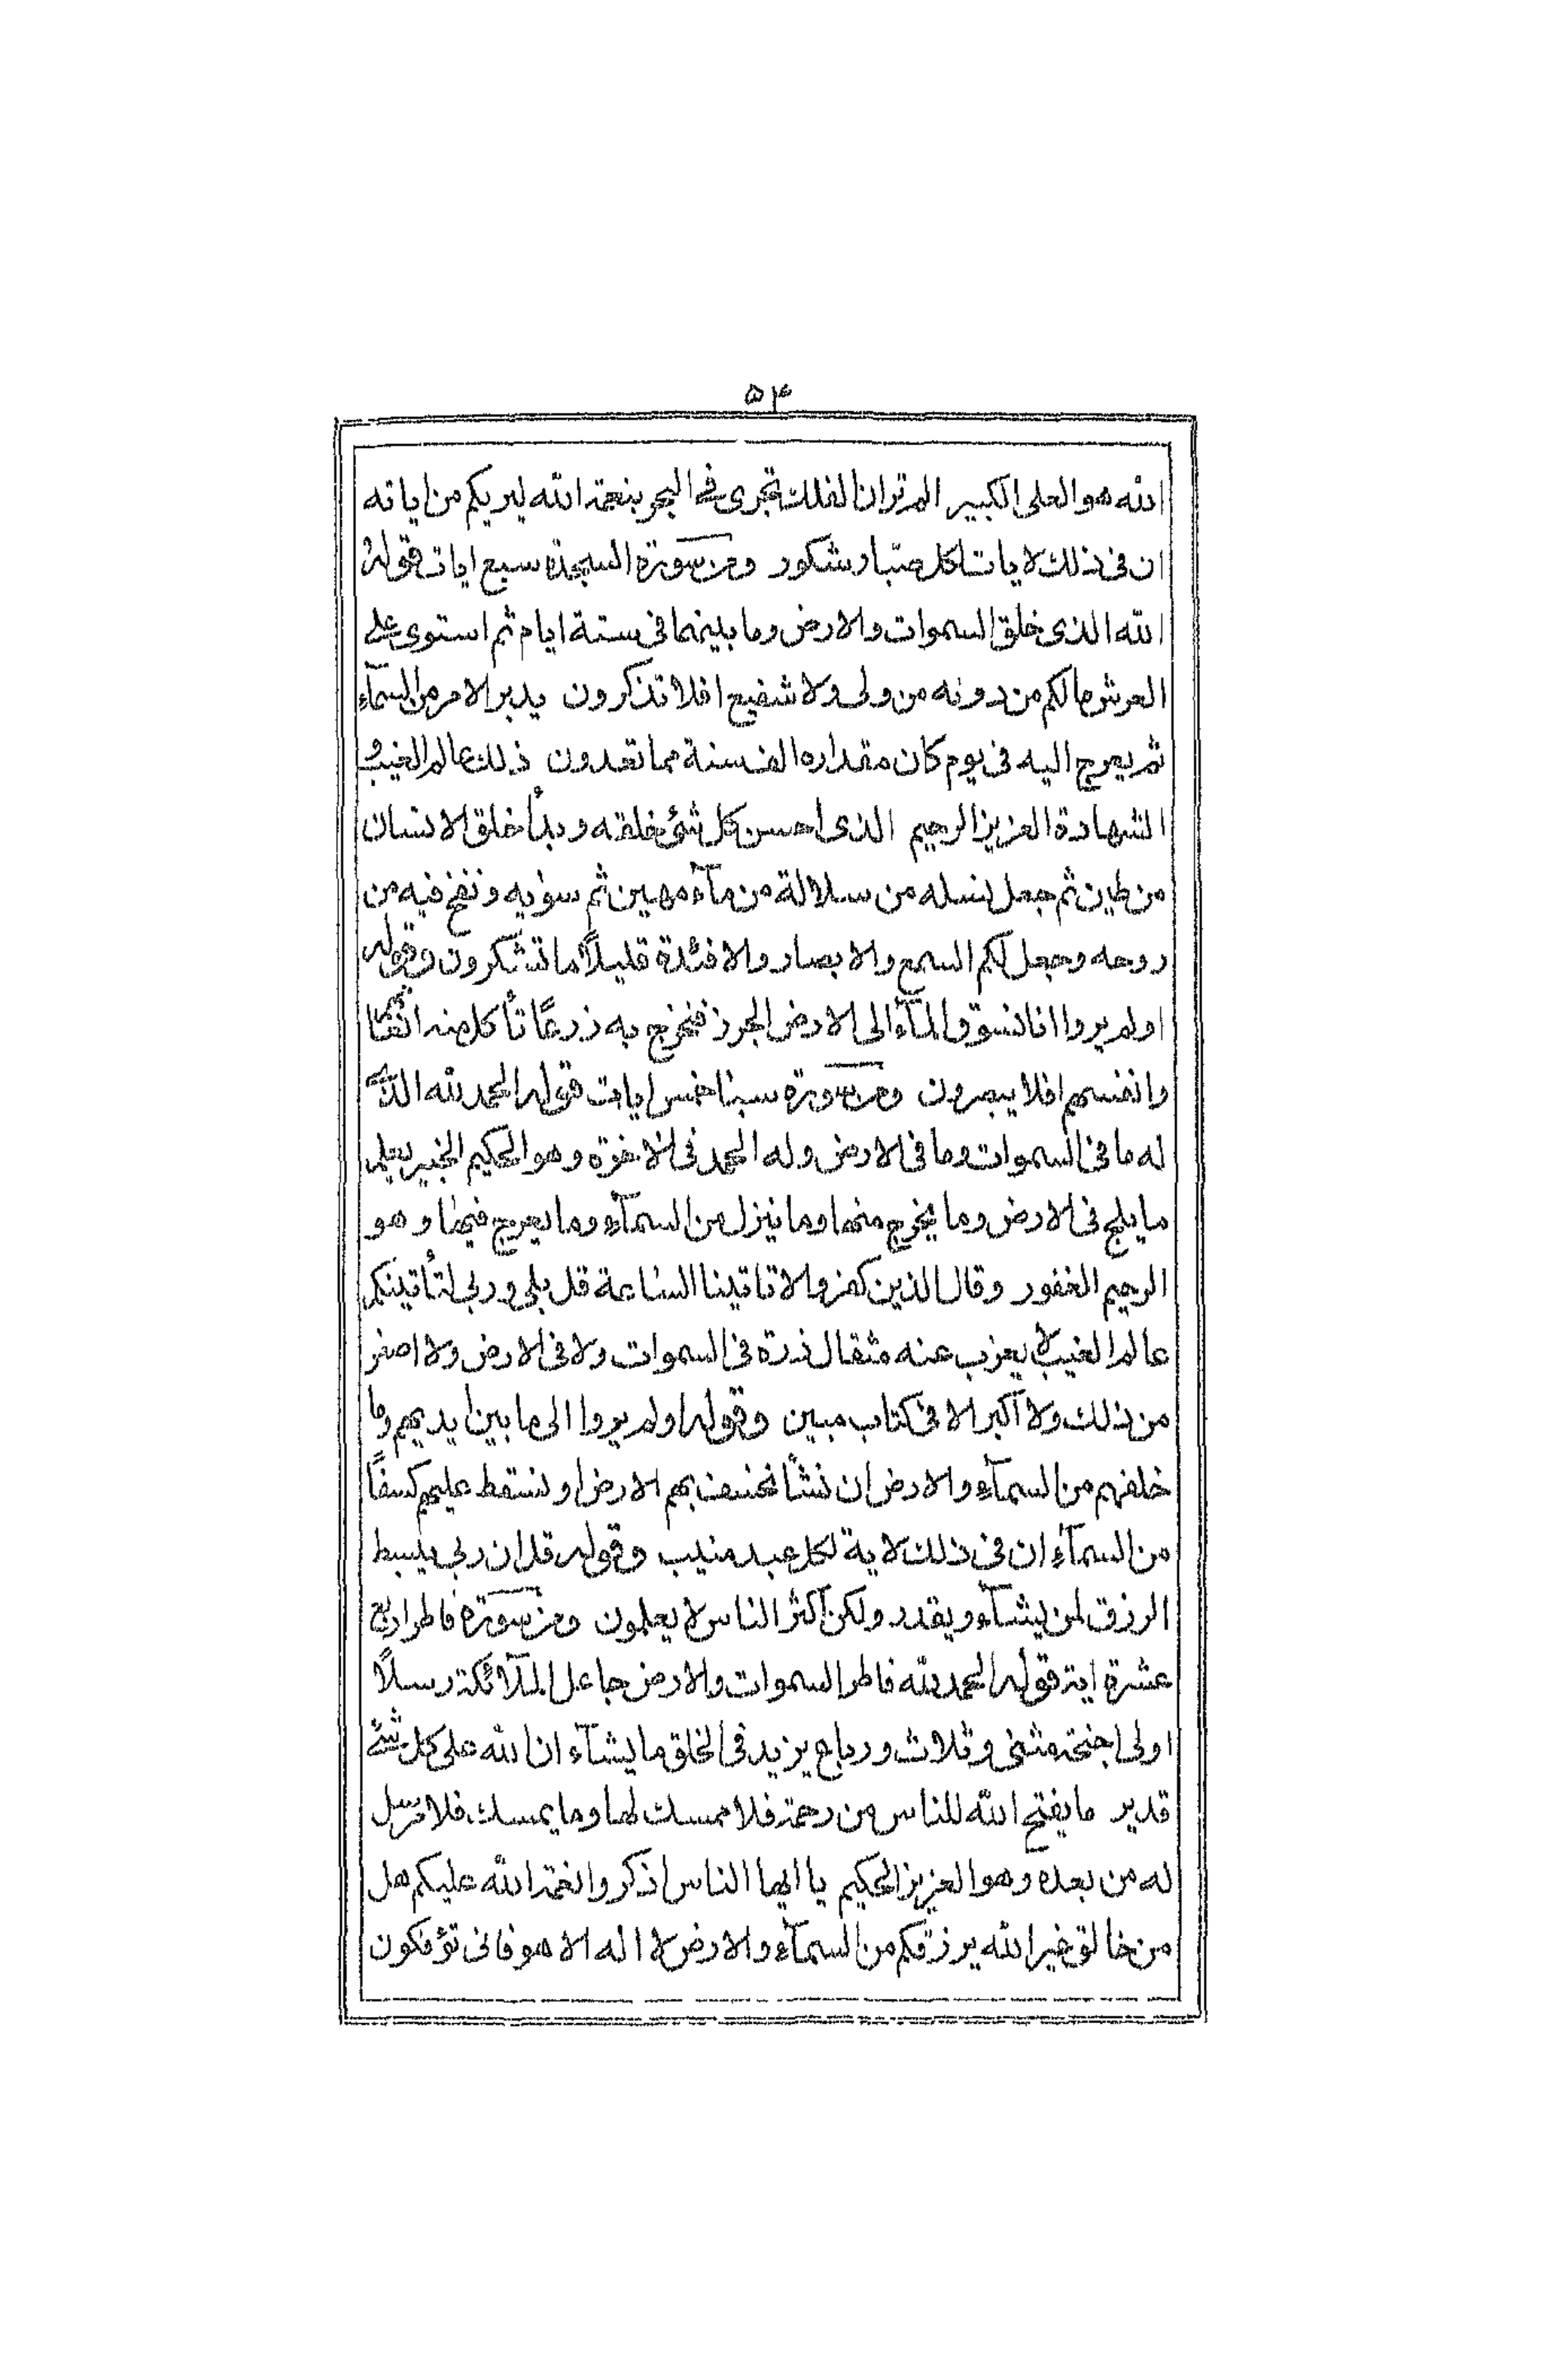 ۵۴
الله هو العلى الكبير المتران الفلك تجرى فى البحر بنعمة الله ليريكم من اياته
ان فى ذلك لايات لكل صبّار شكور ومن سورة السجدة سبع ايات قوله
الله الذى خلق السموات والارض وما بينهما فى ستة ايام ثم استوى على
العرش مالكم من دونه من ولى ولا شفيع افلا تذكرون يدبر الامر من السمآء
ثم يعرج اليه فى يوم كان مقداره الف سنة مما تعدون ذلك عالم الغيب و
الشهادة العزيز الرحيم الذى احسن كل شئ خلقه وبدأ خلق الانسان
من طين ثم جعل نسله من سلالة من مآء مهين ثم سوٰيه ونفخ فيه من
روحه وجعل لكم السمع والابصار والافئدة قليلاً ما تشكرون وقوله
اولم يروا انا نسوق المآء الى الارض الجرز فنخرج به زرعًا تأكل منه انعامهم
وانفسهم افلا يبصرون ومن سورة سبا خمس ايات قوله الحمد لله الذى
له ما فى السموات وما فى الارض وله الحمد فى الاخرة وهو الحكيم الخبير يعلم
ما يلج فى الارض وما يخرج منها وما ينزل من السمآء وما يعرج فيها وهو
الرحيم الغفور وقال الذين كفروا لا تاتينا الساعة قل بلى وربى لتأتينكم
عالم الغيب لا يعزب عنه مثقال ذرة فى السموات ولا فى الارض ولا اصغر
من ذلك ولا اكبر الا فى كتاب مبين وقوله اولم يروا الى ما بين ايديهم وما
خلفهم من السمآء والارض ان نشأ نخسف بهم الارض او نسقط عليهم كسفًا
من السمآء ان فى ذلك لاية لكل عبد منيب وقوله قل ان ربى يبسط
الرزق لمن يشآء ويقدر ولكن اكثر الناس لا يعلمون ومن سورة فاطر اربع
عشرة اية قوله الحمد لله فاطر السموات والارض جاعل الملآئكة رسلاً
اولى اجنحة مثنى وثلاث ورباع يزيد فى الخلق ما يشآء ان الله على كل شئ
قدير ما يفتح الله للناس من رحمة فلا ممسك لها وما يمسك فلا مرسل
له من بعده وهو العزيز الحكيم يا ايها الناس اذكروا نعمة الله عليكم هل
من خالق غير الله يرزقكم من السمآء والارض لا اله الا هو فانى تؤفكون